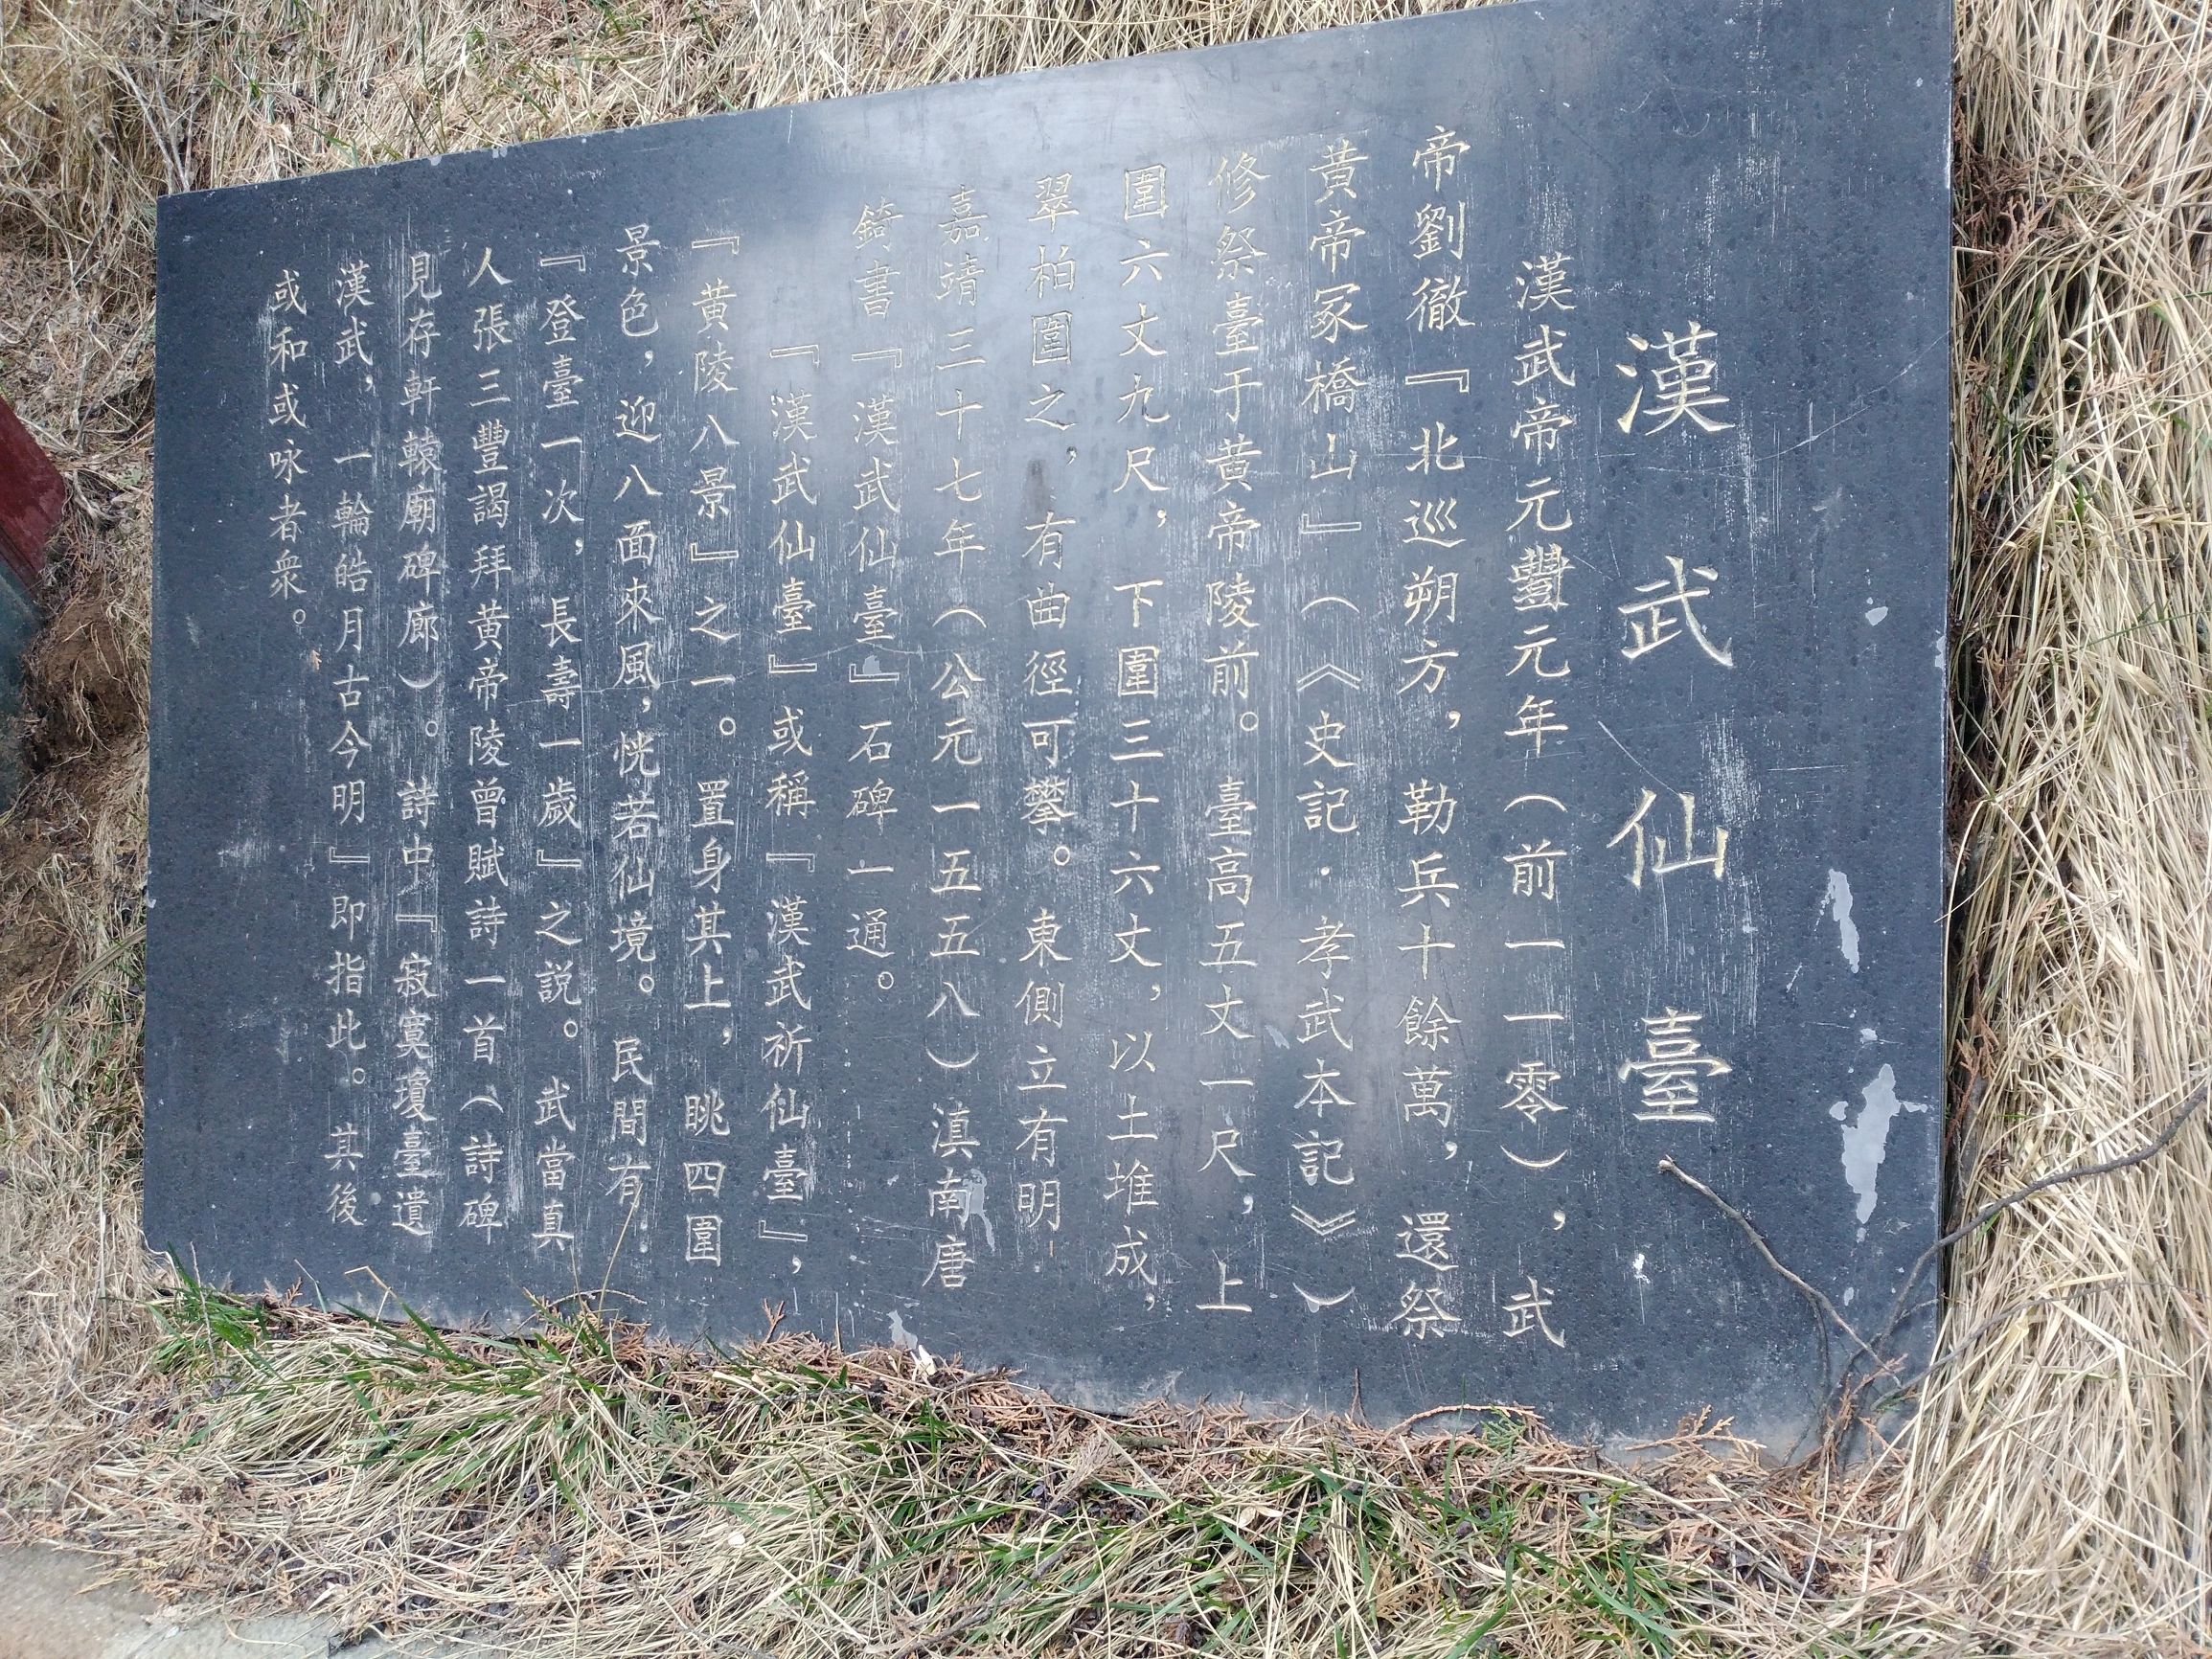 漢武仙臺
漢武帝元豐元年（前一一零），武
帝劉徹『北巡朔方，勒兵十餘萬，還祭
黄帝冢橋山』（《史記·孝武本記》）
修祭臺于黄帝陵前。臺高五丈一尺，上
圍六丈九尺，下圍三十六丈，以土堆成，
翠柏圍之，有曲徑可攀。東側立有明
嘉靖三十七年（公元一五五八）滇南唐
錡書『漢武仙臺』石碑一通。
『漢武仙臺』或稱『漢武祈仙臺』，
『黄陵八景』之一。置身其上，眺四圍
景色，迎八面來風，恍若仙境。民間有
『登臺一次，長壽一歲』之説。武當真
人張三豐謁拜黄帝陵曾賦詩一首（詩碑
見存軒轅廟碑廊）。詩中『寂寞瓊臺遺
漢武，一輪皓月古今明』即指此。其後
或和或咏者衆。